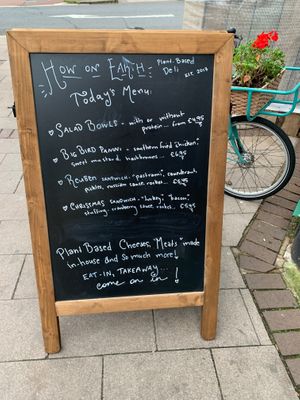 How on Earth
Plant-Based
Deli
Today's Menu:
Salad Bowls - with or without
protein... from £4.95
Big Bird Panini - southern fried "chicken",
sweet mustard, hashbrowns... £6.95
Reuben sandwich - "pastrami", sauerkraut,
pickle, russian sauce, rocket... £6.95
Christmas sandwich - "turkey", "bacon",
stuffing, cranberry sauce, rocket... £6.95
Plant Based Cheeses, Meats made
in-house and so much more!
EAT-IN, TAKEAWAY...
come on in!